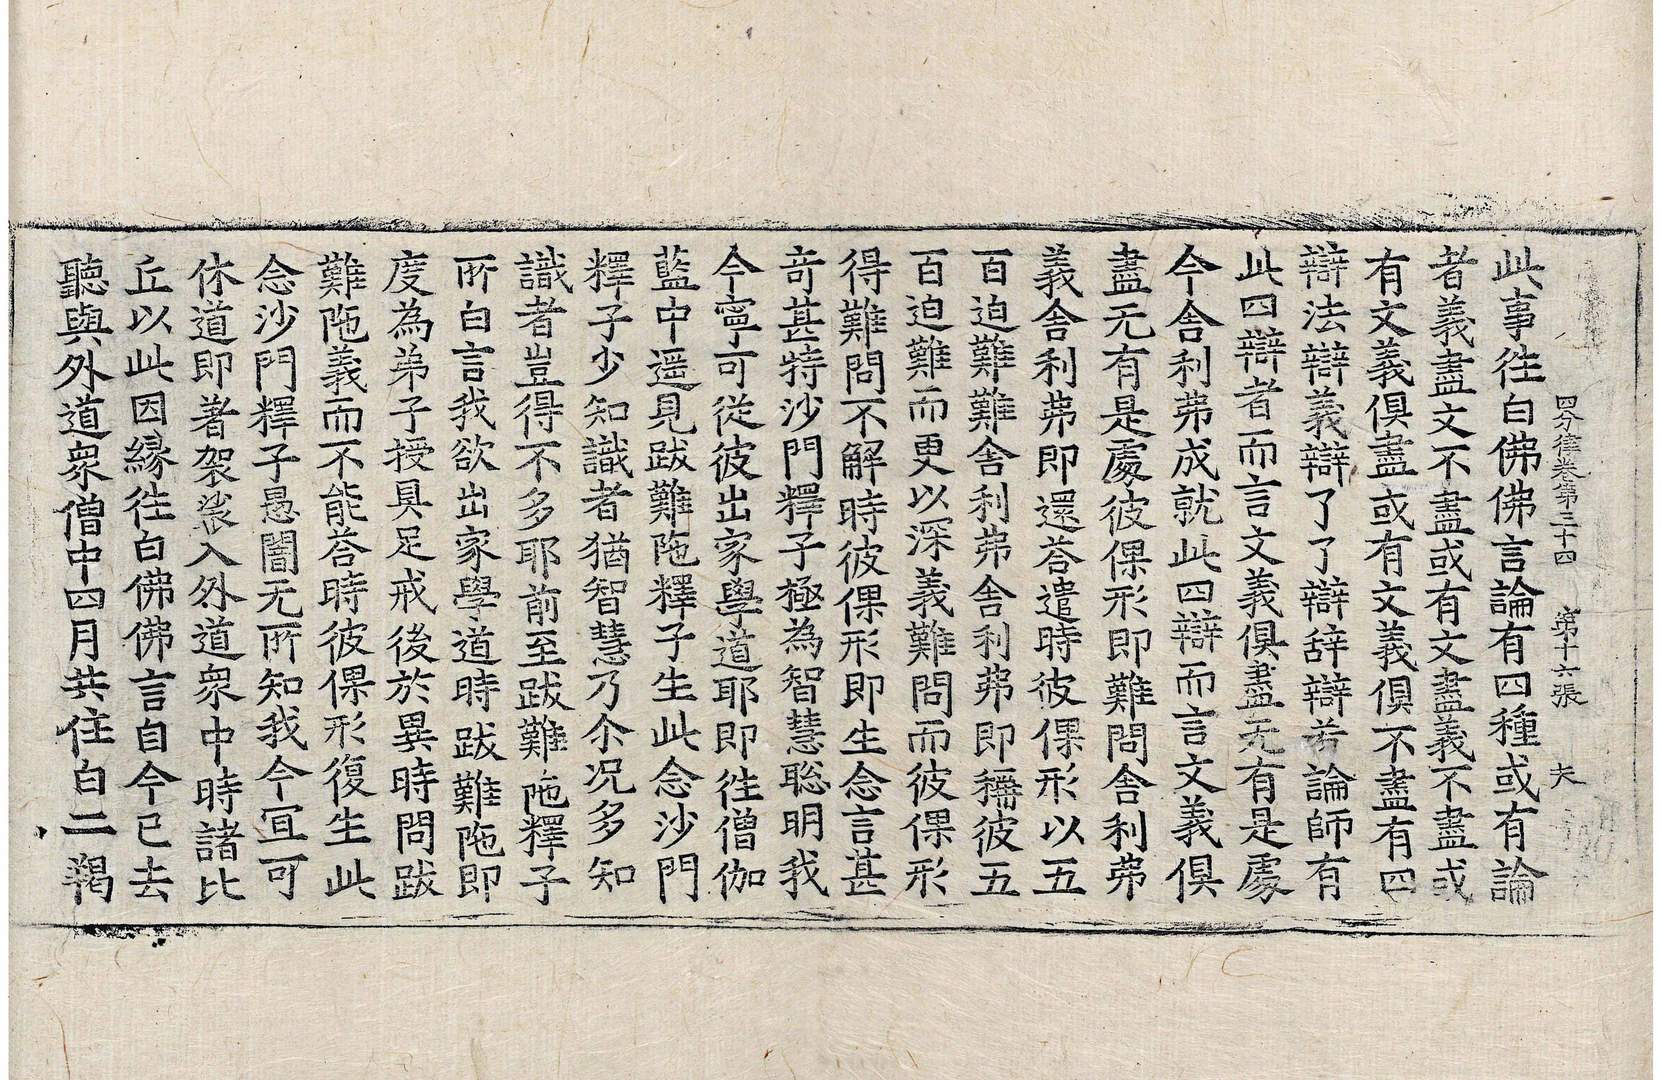 四分律卷第三十四 第十六張 夫
此事往白佛佛言論有四種或有論
者義盡文不盡或有文盡義不盡或
有文義俱盡或有文義俱不盡有四
辯法辯義辯了了辯辭辯若論師有
此四辯者而言文義俱盡无有是處
今舍利弗成就此四辯而言文義俱
盡无有是處彼倮形即難問舍利弗
義舍利弗即還荅遣時彼倮形以五
百迫難難舍利弗舍利弗即稱彼五
百迫難而更以深義難問而彼倮形
得難問不解時彼倮形即生念言甚
奇甚特沙門釋子極為智慧聡明我
今寧可從彼出家學道耶即往僧伽
藍中遥見跋難陁釋子生此念沙門
釋子少知識者猶智慧乃尒况多知
識者豈得不多耶前至跋難陁釋子
所白言我欲出家學道時跋難陁即
度為弟子授具足戒後於異時問跋
難陁義而不能荅時彼倮形復生此
念沙門釋子愚闇无所知我今宜可
休道即著袈裟入外道衆中時諸比
丘以此因縁往白佛佛言自今已去
聽與外道衆僧中四月共住白二羯